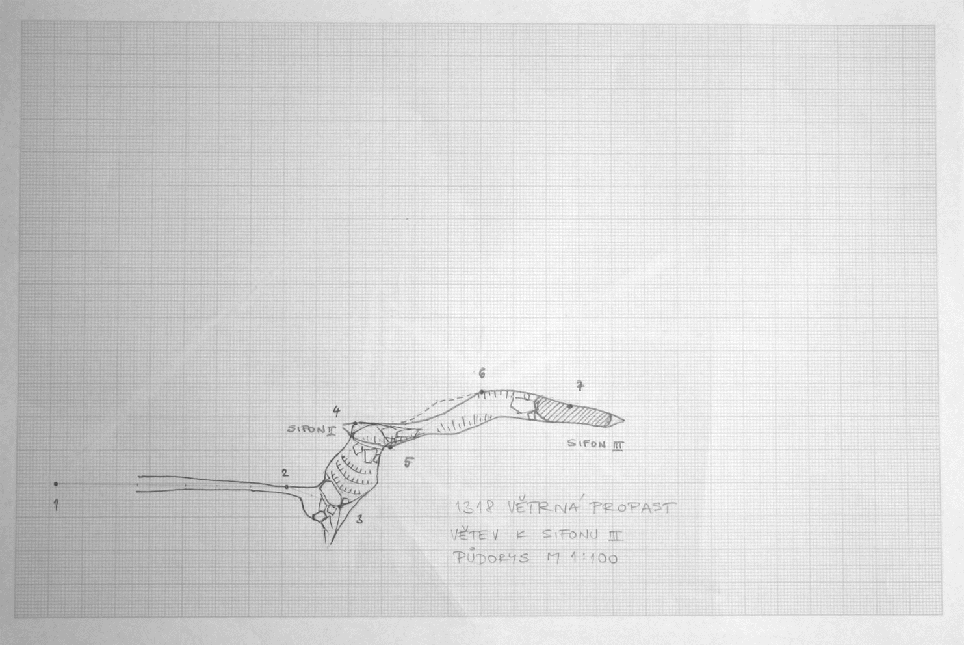 6
7
4
SIFON II
SIFON III
5
2
1
3
1318 VĚTRNÁ PROPAST
VĚTEV K SIFONU III
PŮDORYS M 1:100